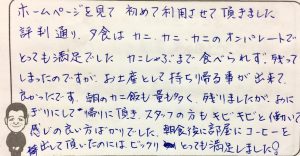 ホームページを見て 初めて利用させて頂きました
評判通り、夕食は カニ・カニ・カニのオンパレードで
とっても満足でした カニしゃぶまで食べられず、残って
しまったのですが、お土産として持ち帰る事が出来て
良かったです。朝のカニ飯も量も多く、残りましたが、おに
ぎりにして帰りに頂き、スタッフの方もキビキビと働いて
感じの良い方ばかりでした。朝食後に部屋にコーヒーを
出して頂いたのにはビックリ とっても満足しました!